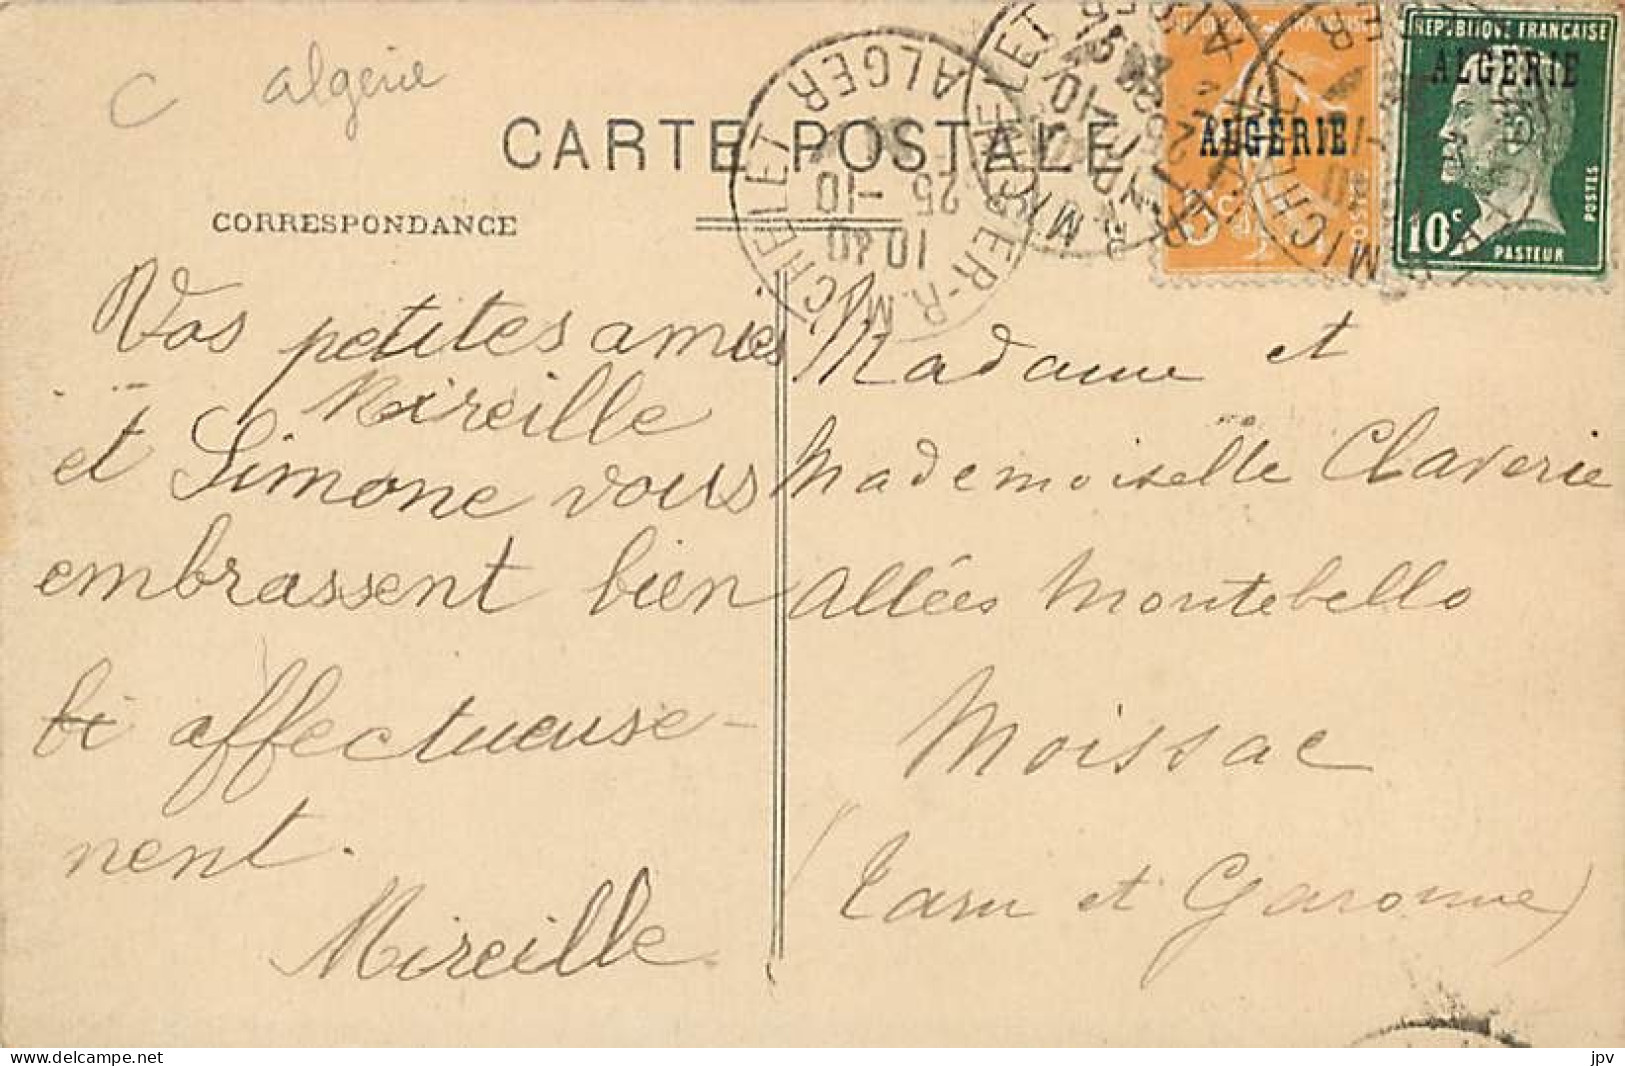 C algérie
CARTE POSTALE
CORRESPONDANCE
Vos petites amies
Mireille
et Simone vous
embrassent bien
bi affectueuse-
nent.
Mireille
Madame et
Mademoiselle Claverie
Allées Montebello
Moissac
(Tarn et Garonne)
ALGER-R. MICHELET
ALGER
10 40
25 -10
ALGERIE
POSTES
REPUBLIQUE FRANÇAISE
ALGERIE
POSTES
10c
PASTEUR
delcampe.net
jpv